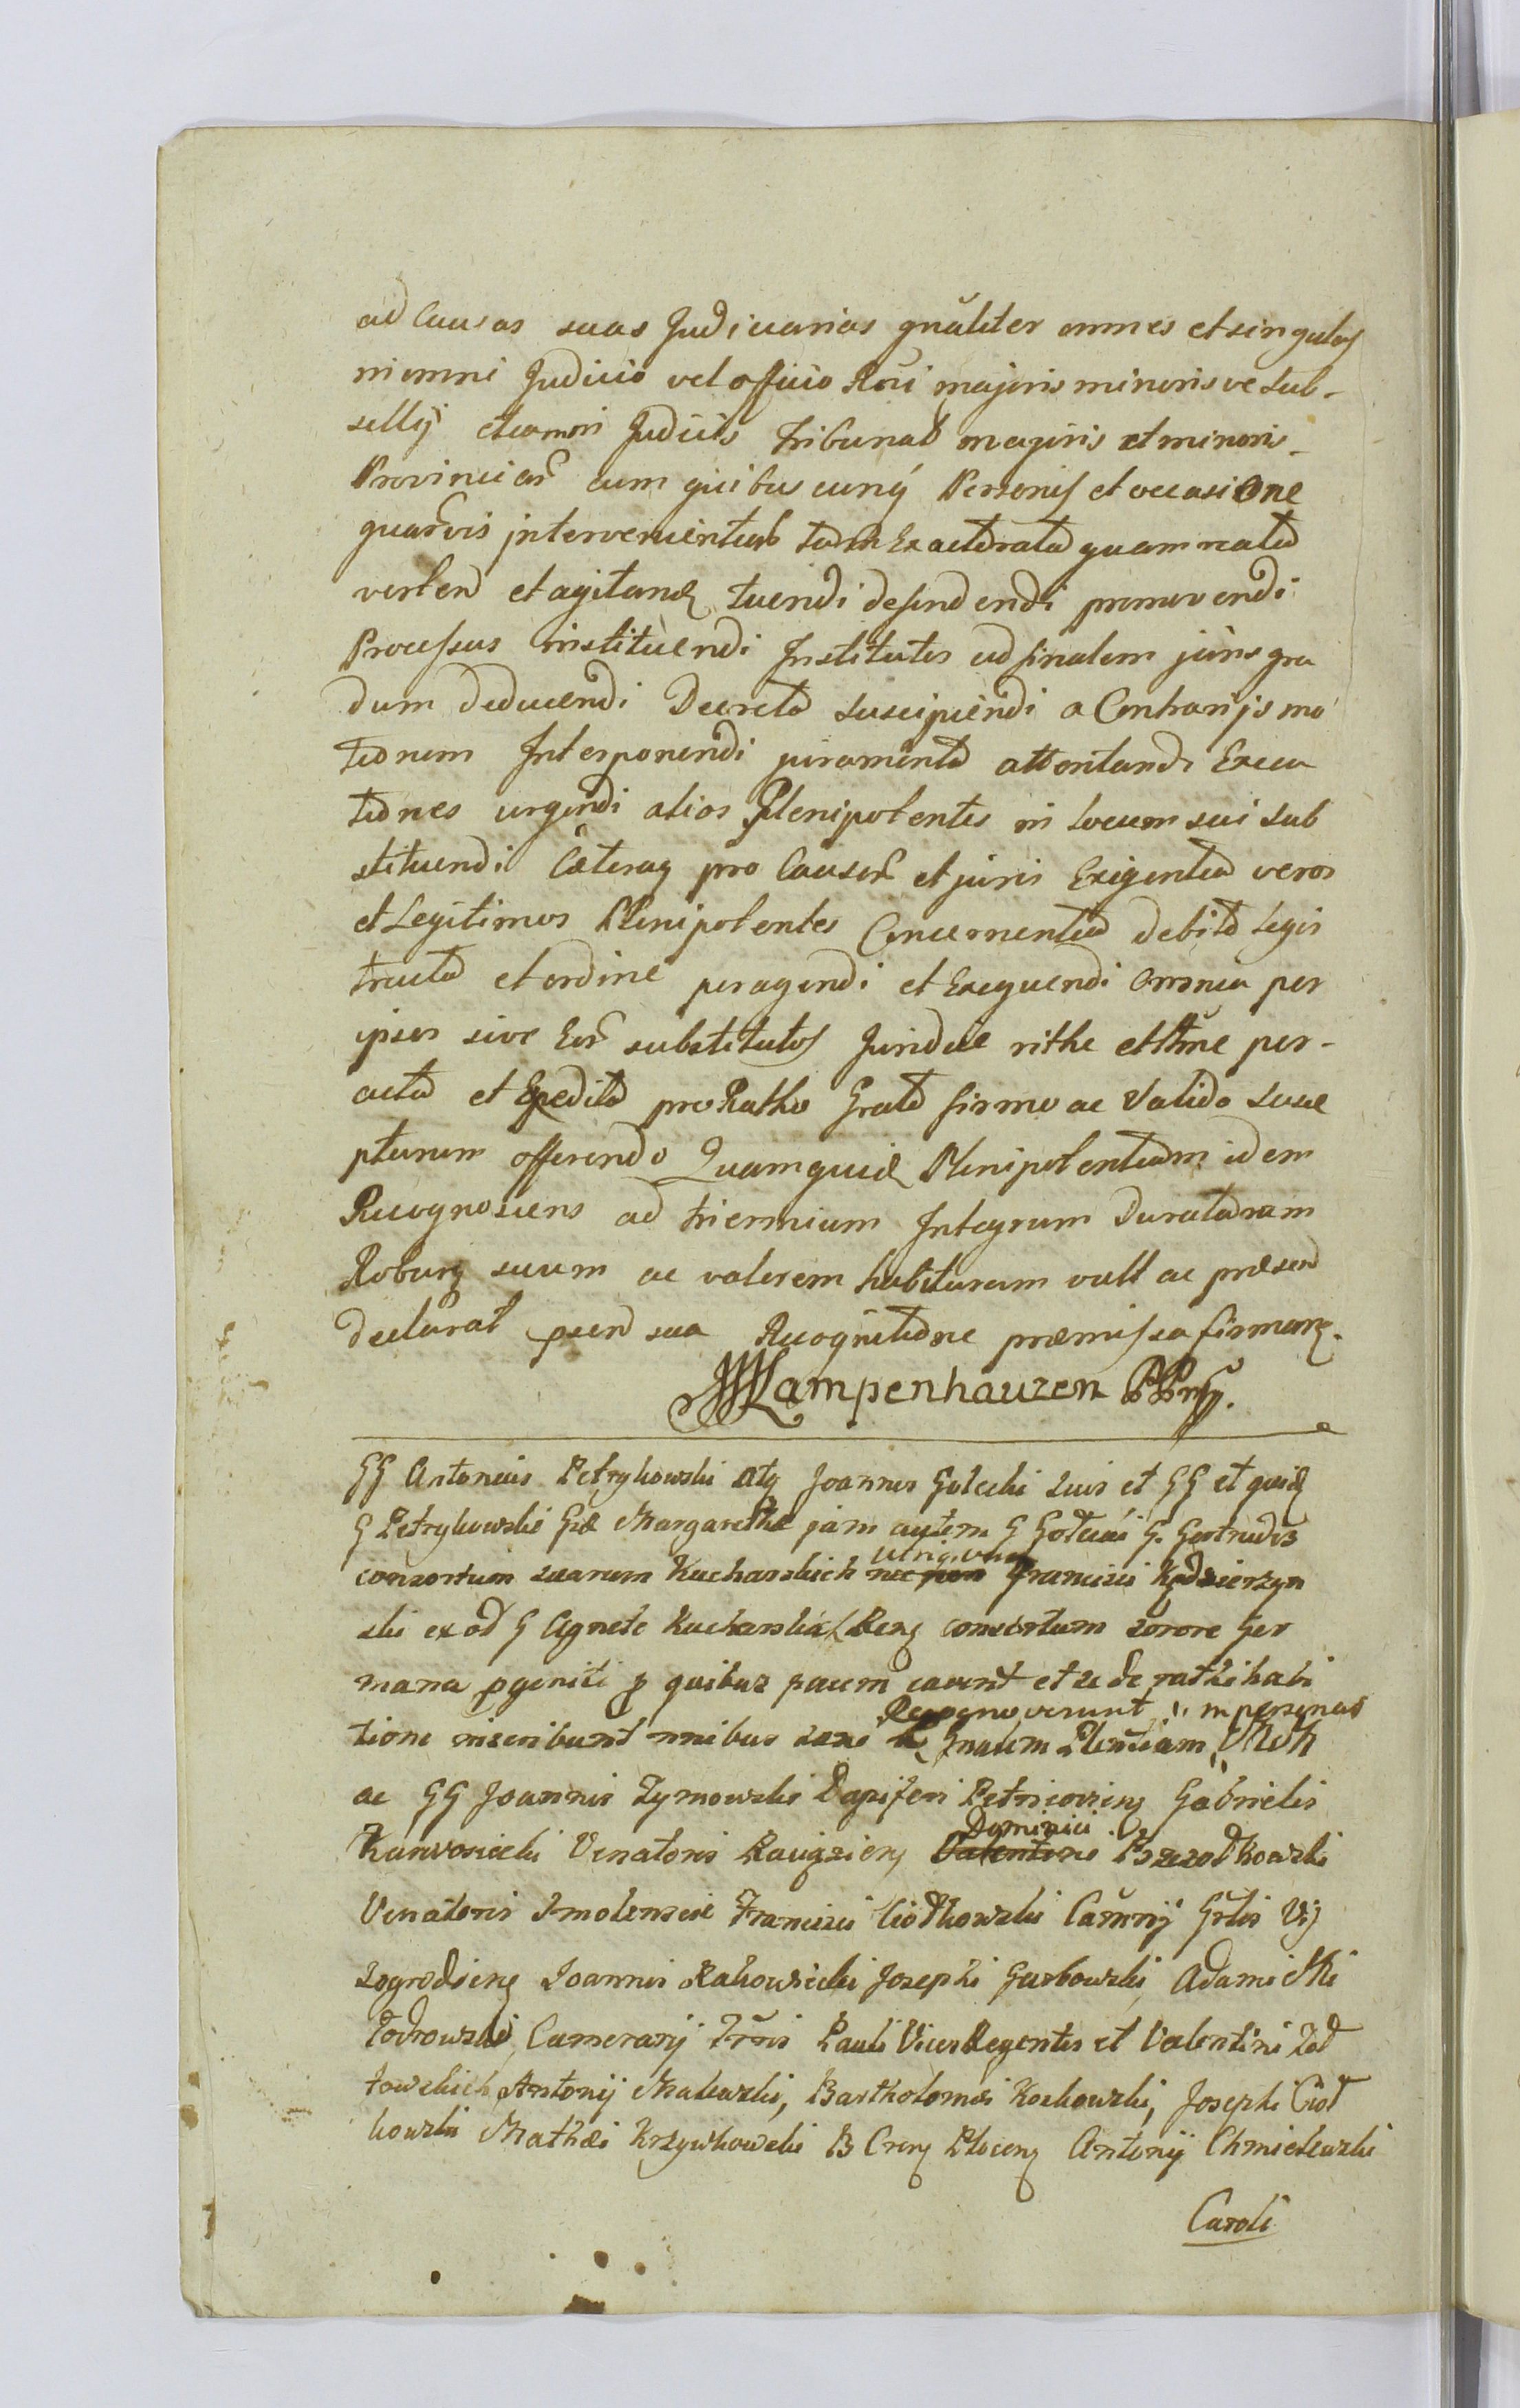 ad Causas suas Judiciarias gnãliter omnes et singulas
in omni Judicio vel officio Rni majoris minorisve sub-
sellij etiam in Judiciis Tribunal majoris et minoris
Provinciar cum quibuscunq Personis et occasione
quarvis intervenientib tam Ex actoratu quam reatu
verten et agitand tuendi defendendi promovendi
Processus instituendi Institutos ad finalem juris gra
dum deducendi Decreta suscipiendi a Contrarijs mo
tionem Interponendi juramenta attentandi Execu
tiones urgendi alios Plenipotentes in locum sui sub
stituendi Cæteraq pro Causar et juris Exigentia veros
et Legitimos Plenipotentes Concernentia debito Legis
tractu et ordine peragendi et Exequendi Omnia per
ipsos sive Eor substitutos Juridice rithe et ltme per-
acta et Expedita pro Ratho Grato firmo ac Valido susce
pturum offerendo Quam quid Plenipotentiam idem
Recognoscens ad triennium Integrum duraturam
Roburq suum ac valorem habituram vult ac præsen
declarat psen sua Recognitione præmissa firmans.
Kampenhauzen PPmp.
GG Antonius Petrykowski atq Joannes Golecki suis et GG et quid
G Petrykowski Gæ Margarethæ jam autem G Golecki G. Gertrudis
consortum suarum Kucharskich nec non Francisci Kędzierzyn
ski ex od G Agnete Kucharska consortum sorore Ger
mana pgeniti p quibus pacem cavent et se de rathihabi
tione inscribunt nnibus Recognoverunt in personas
Gnalem Plentiam
ac GG Joannis Zymowski Dapiferi Petricoviens Gabrielis
Karwosiecki Venatoris Raugziens Valentini Dominici Brzozowski
Venatoris Smolenscie Francisci Ciołkowski Camrij Grlis Vij
sogrodiens Joannis Rakowiecki Josephi Garbowski, Adami
Camerarij Trris Pauli ViceRegentis et Valentini Zod
towskich Antonij Makowski, Bartholomei Kochowski, Josephi Ciol
kowski Mathæi Krzywkowski B Crens Plocens Antonij Chmielewski
Caroli